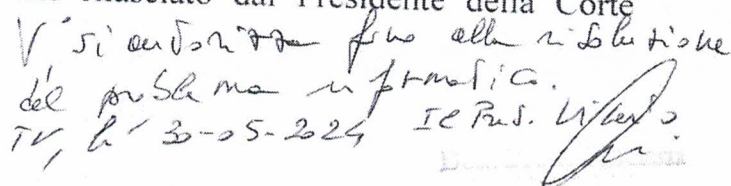 rilasciato dal Presidente della Corte
V° si autorizza fino alla risoluzione
del problema informatico.
TV, lì 30-05-2024 Il Pres.